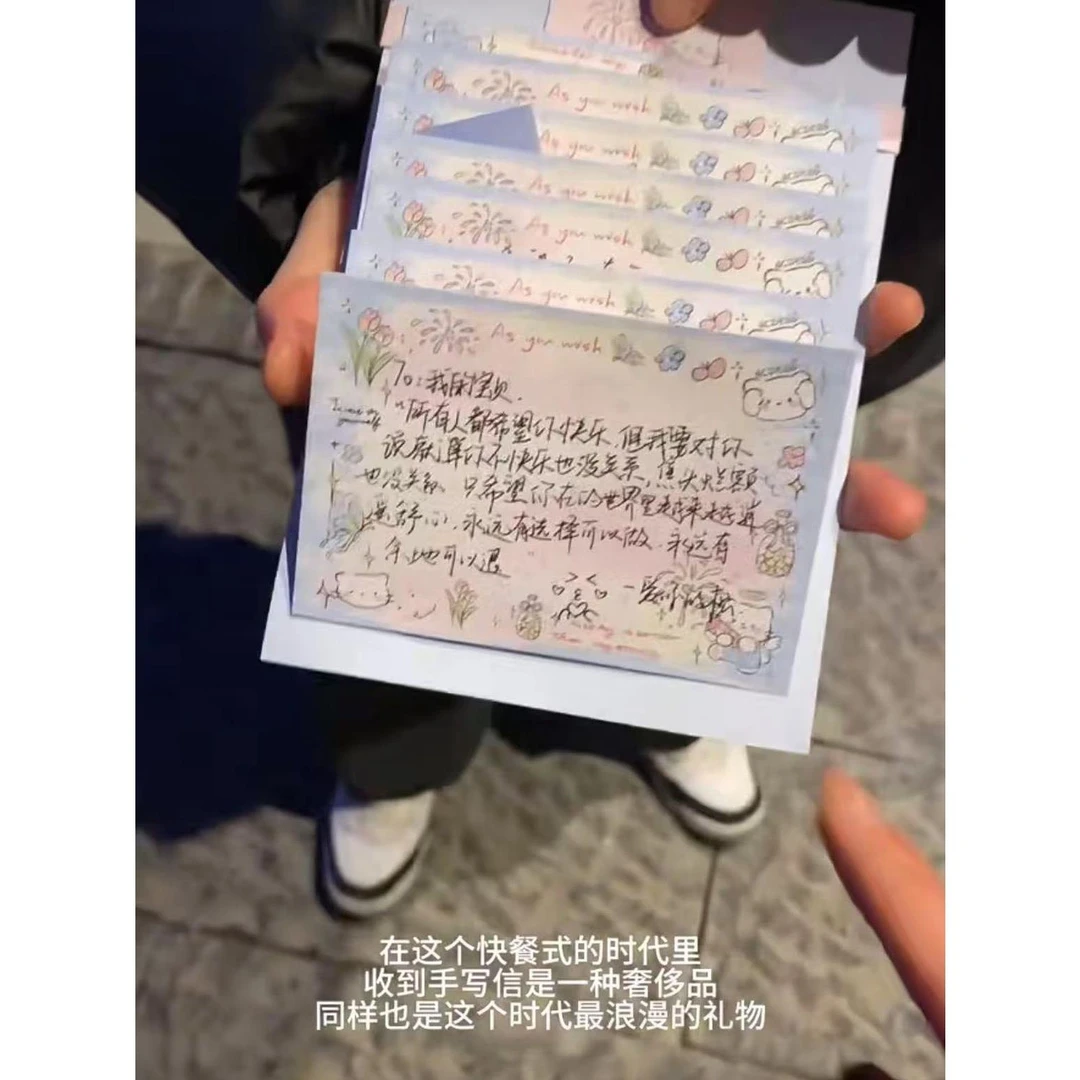 As you wish
As you wish
As you wish
As you wish
As you wish
As you wish
To:我的宝贝.
"所有人都希望你快乐,但我要对你
说 你不快乐也没关系,焦头烂额
也没关系、只希望你在的世界里越来越
舒心、永远有选择可以做、永远有
余地可以退
一爱你的
在这个快餐式的时代里
收到手写信是一种奢侈品
同样也是这个时代最浪漫的礼物